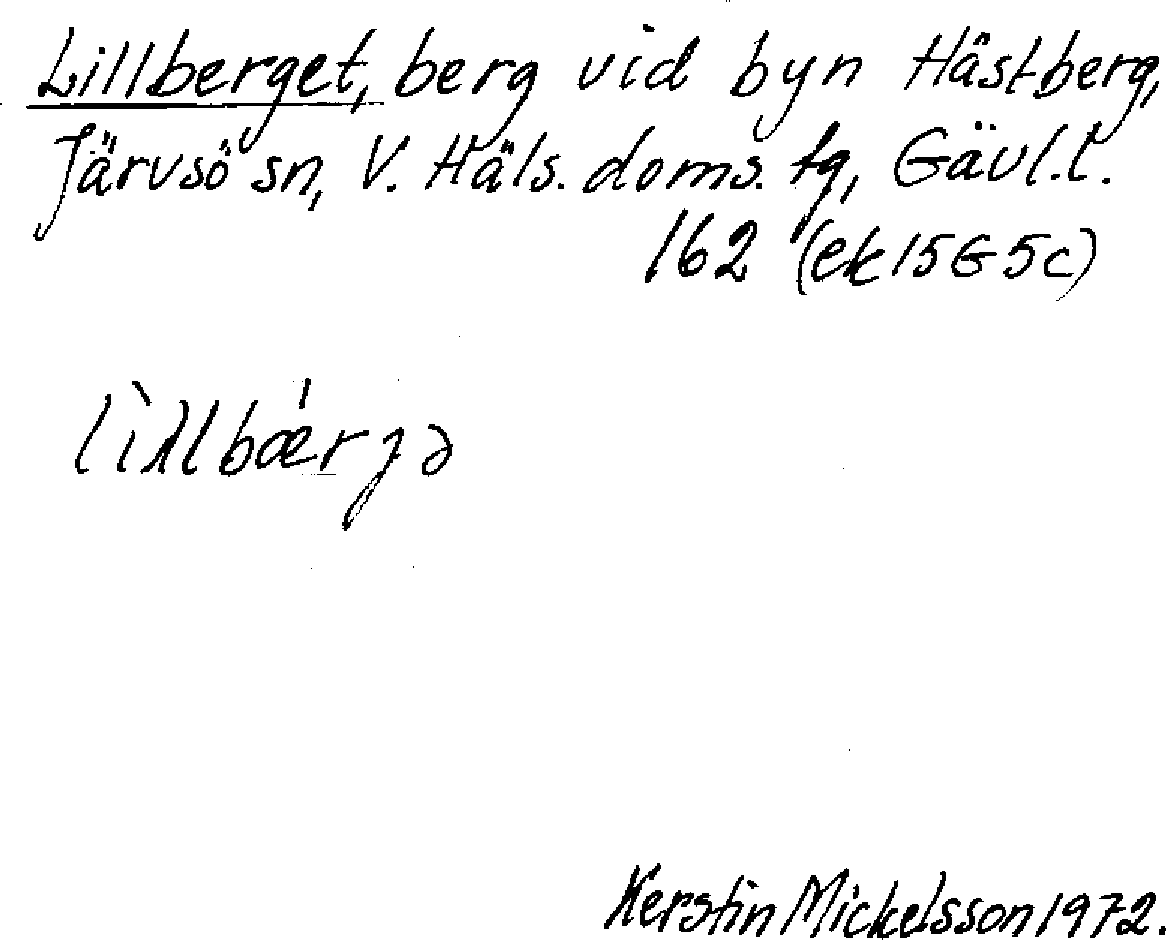 Lillberget, berg vid byn Hästberg,
Järvsö sn, V. Häls. doms. tg, Gävl.l.
162 (ek 15G5c)
lìllbǽrjə
Kerstin Mickelsson 1972.